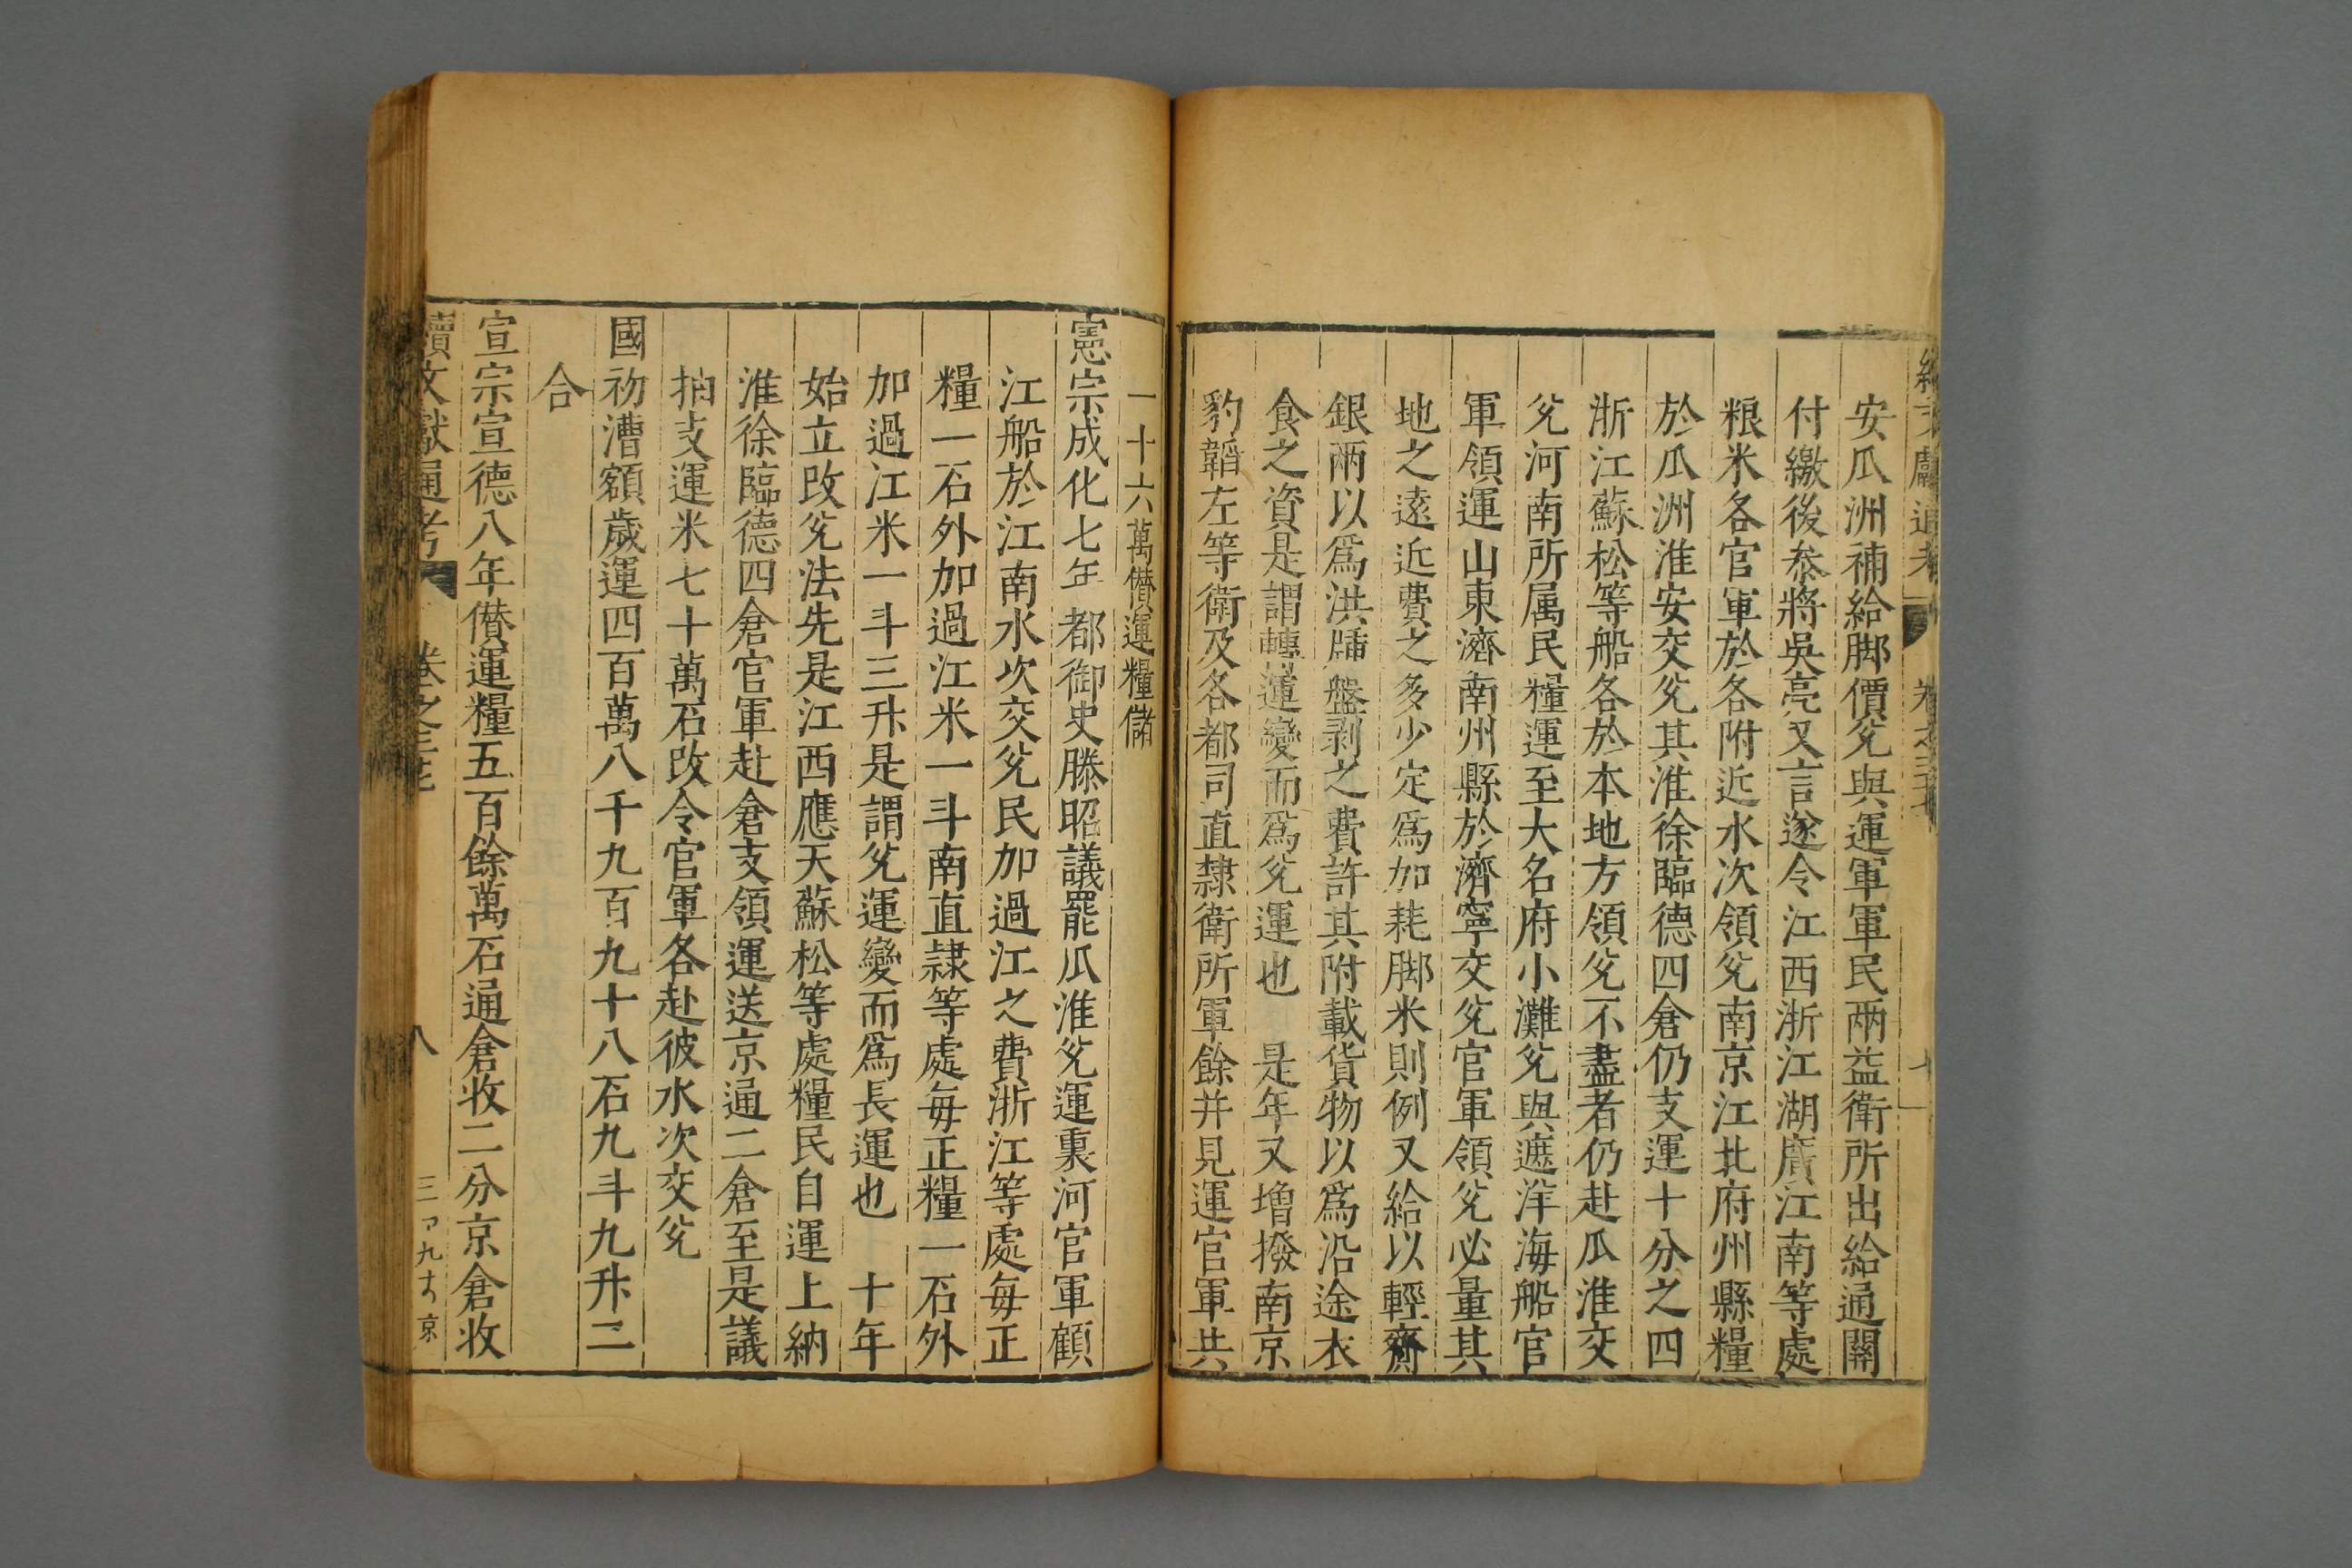 安瓜洲補給脚價兌與運軍軍民兩益衛所出給通關
付繳後叅將吳亮又言遂令江西浙江湖廣江南等處
粮米各官軍於各附近水次領兌南京江北府州縣糧
於瓜洲淮安交兌其淮徐臨德四倉仍支運十分之四
浙江蘇松等船各於本地方領兌不盡者仍赴瓜淮交
兌河南所属民糧運至大名府小灘兌與遮洋海船官
軍領運山東濟南州縣於濟寧交兌官軍領兌必量其
地之遠近費之多少定爲加耗脚米則例又給以輕齎
銀兩以爲洪牐盤剥之費許其附載貨物以爲沿途衣
食之資是謂轉運變而爲兌運也　是年又增撥南京
豹韜左等衛及各都司直隸衛所軍餘并見運官軍共
一十六萬儧運糧儲
憲宗成化七年都御史滕昭議罷瓜淮兌運裏河官軍顧
江船於江南水次交兌民加過江之費浙江等處每正
糧一石外加過江米一斗南直隸等處每正糧一石外
加過江米一斗三升是謂兌運變而爲長運也　十年
始立改兌法先是江西應天蘇松等處糧民自運上納
淮徐臨德四倉官軍赴倉支領運送京通二倉至是議
將支運米七十萬石改令官軍各赴彼水次交兌
國初漕額歲運四百萬八千九百九十八石九斗九升二
合
宣宗宣德八年儧運糧五百餘萬石通倉收二分京倉收
續文獻通考　卷之三十七　八